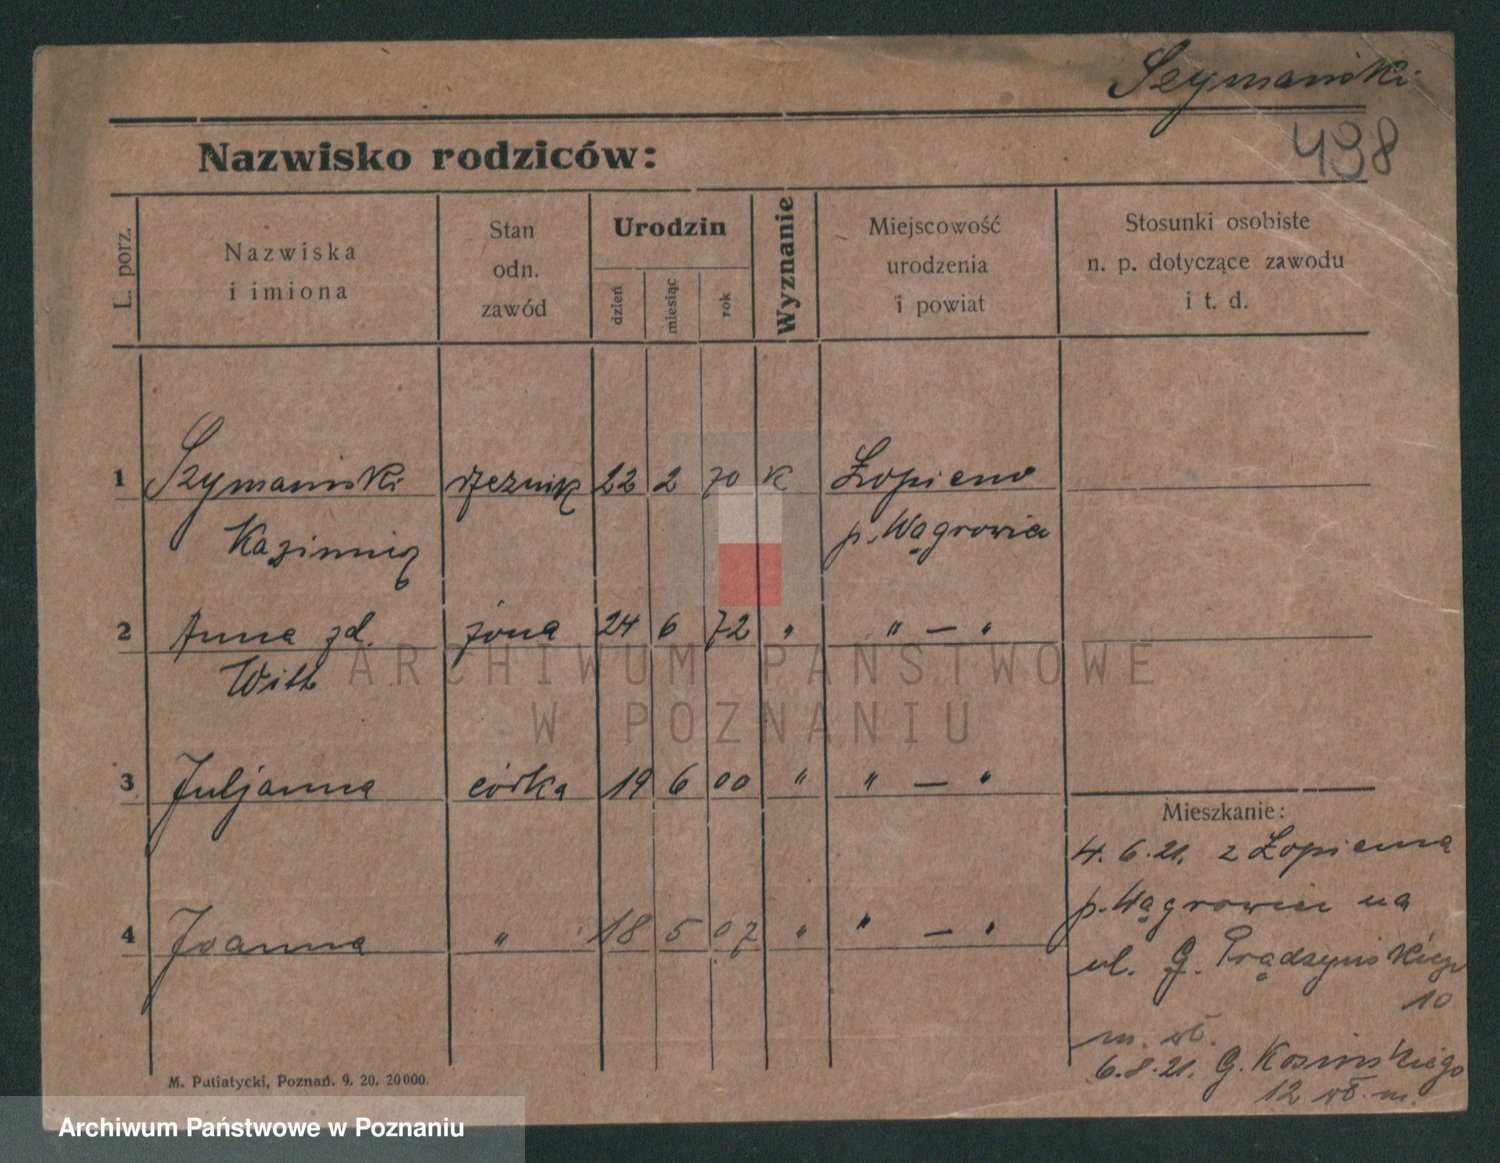 Szymański
498
Nazwisko rodziców:
L. porz.
Nazwiska
i imiona
Stan
odn.
zawód
Urodzin
dzień
miesiąc
rok
Wyznanie
Miejscowość
urodzenia
i powiat
Stosunki osobiste
n. p. dotyczące zawodu
i t. d.
1 Szymański rzeźnik 22 2 70 k Łopieno
Kazimierz p. Wągrowiec
2 Anna zd. żona 24 6 72 " " — "
Witt
3 Juljanna córka 19 6 00 " " — "
Mieszkanie:
4. 6. 21. z Łopienna
p. Wągrowiec na
4 Joanna " 18 5 07 " " — "
ul. G. Prądzyńskiego
10
m. wł.
6.8.21. G. Kosińskiego
12 wł. m.
M. Putiatycki, Poznań. 9. 20. 20000.
ARCHIWUM PAŃSTWOWE
W POZNANIU
Archiwum Państwowe w Poznaniu